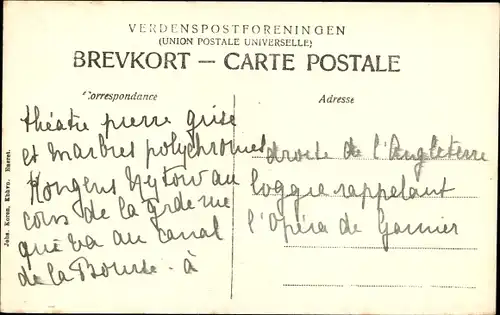 VERDENSPOSTFORENINGEN
(UNION POSTALE UNIVERSELLE)
BREVKORT — CARTE POSTALE
Correspondance
Adresse
théatre pierre grise
et marbres polychromes
Kongens Nytorv au
coin de la grde rue
qui va au canal
de la Bourse - à
droite de l'Angleterre
loggia rappelant
l'Opéra de Garnier
Eneret.